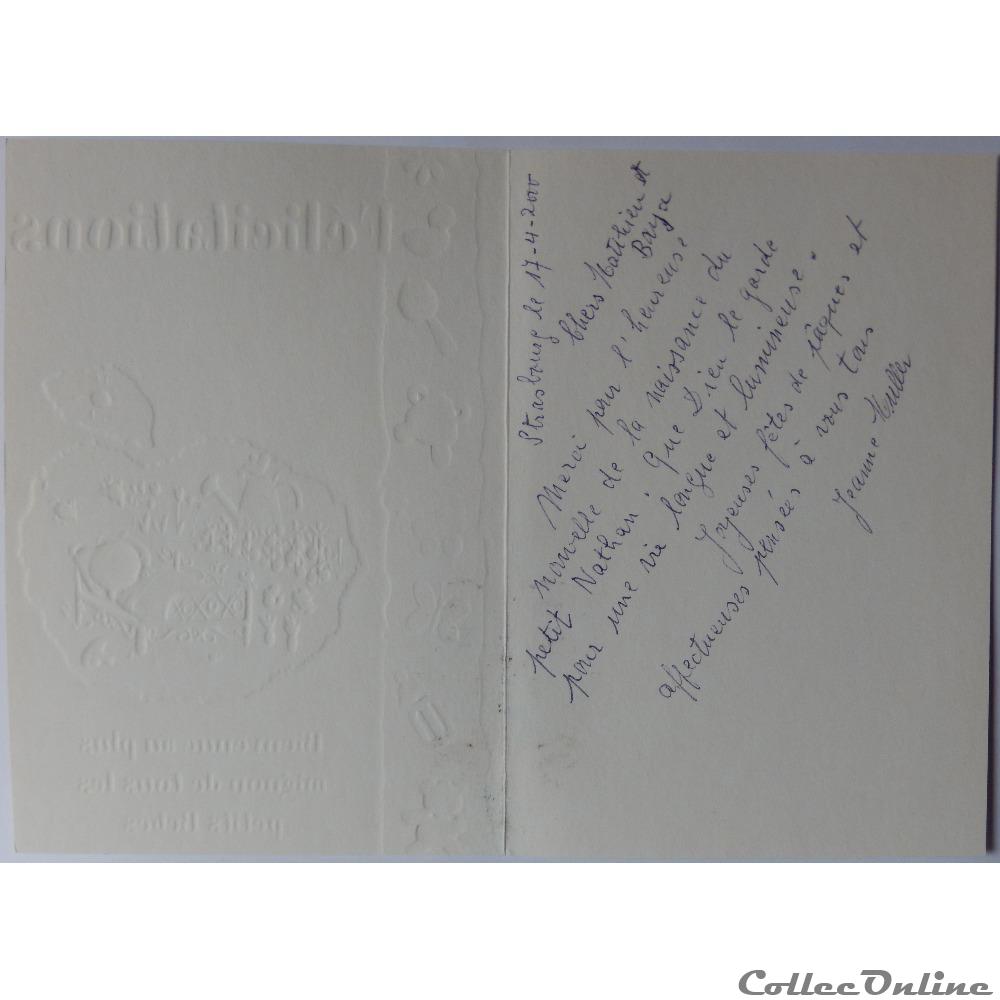 Félicitations
Bienvenue au plus
mignon de tous les
petits Bébés
Strasbourg le 17-4-2000
Chers Matthieu et
Baya
Merci pour l'heureuse
nouvelle de la naissance du
petit Nathan. Que Dieu le garde
pour une vie longue et lumineuse.
Joyeuses fêtes de pâques et
affectueuses pensées à vous tous
Jeanne Muller
CollecOnline